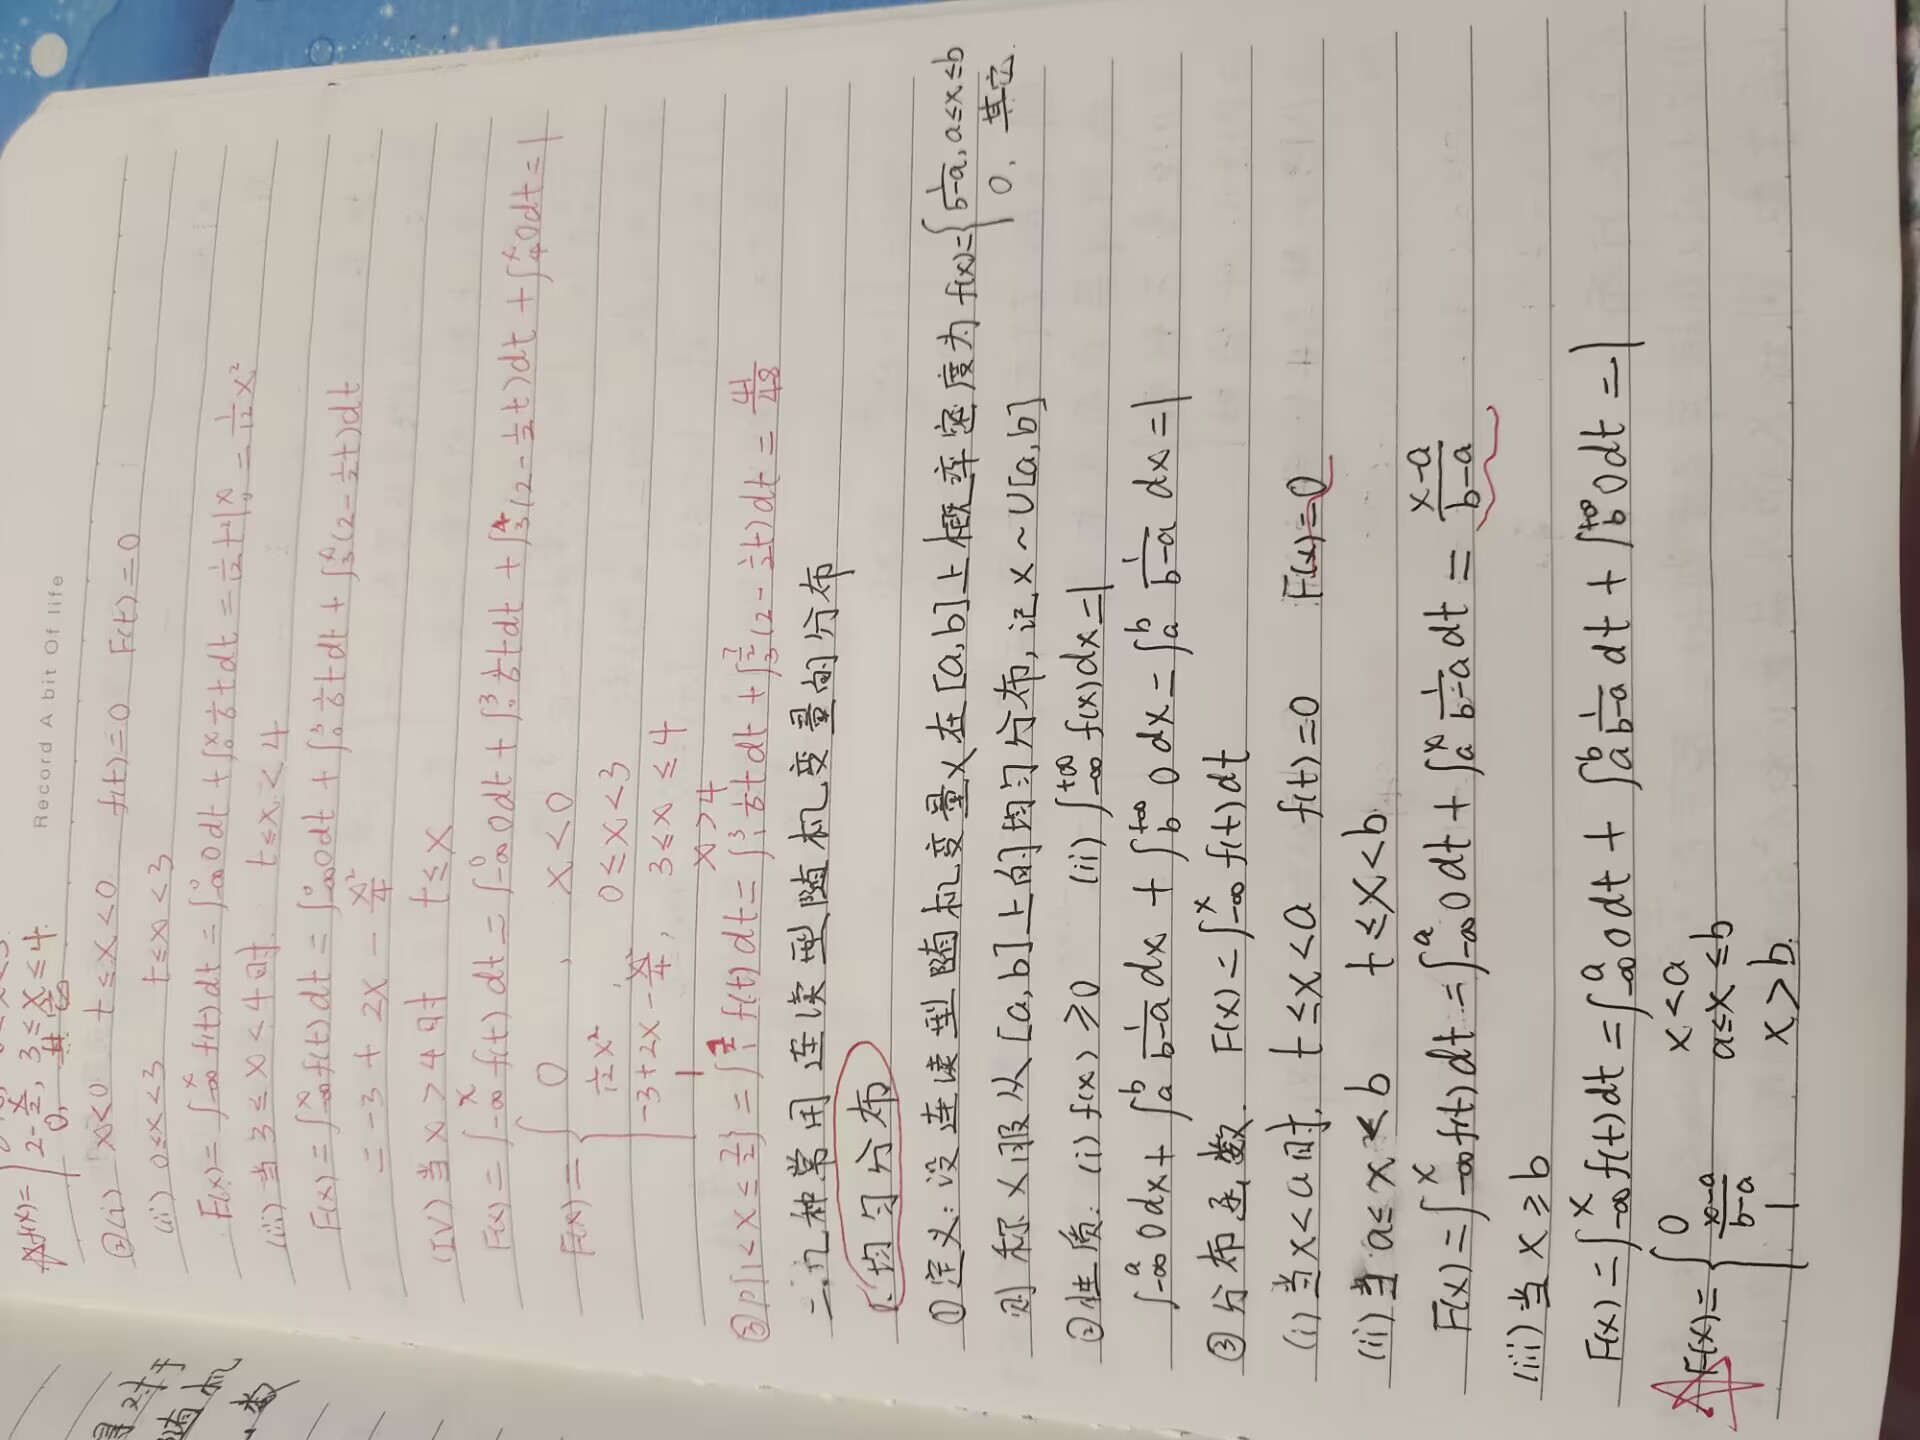 Record A bit Of life
f(x)= { 2-x/2, 3≤x≤4
0,
②(i) x<0 t≤x<0 f(t)=0 F(t)=0
(ii) 0≤x<3 t≤x<3
F(x)=∫_{-∞}^{x} f(t)dt=∫_{-∞}^{0} 0dt+∫_{0}^{x} 1/6 t dt=1/12 t²|_{0}^{x}=1/12 x²
(iii) 当3≤x<4时. t≤x<4
F(x)=∫_{-∞}^{x} f(t)dt=∫_{-∞}^{0} 0dt+∫_{0}^{3} 1/6 t dt+∫_{3}^{x}(2-1/2 t)dt
=-3+2x-x²/4
(IV) 当x>4时 t≤x
F(x)=∫_{-∞}^{x} f(t)dt=∫_{-∞}^{0} 0dt+∫_{0}^{3} 1/6 t dt+∫_{3}^{4}(2-1/2 t)dt+∫_{4}^{x} 0dt=1
F(x)= { 0 , x<0
1/12 x², 0≤x<3
-3+2x-x²/4, 3≤x≤4
1 x>4
③P{1<x≤7/2}=∫_{1}^{7/2} f(t)dt=∫_{1}^{3} 1/6 t dt+∫_{3}^{7/2}(2-1/2 t)dt=41/48
二.几种常用连续型随机变量的分布
1.均匀分布
①定义:设连续型随机变量X在[a,b]上概率密度为f(x)={ 1/(b-a), a≤x≤b
0, 其它.
则称X服从[a,b]上的均匀分布,记x~U[a,b]
②性质: (i) f(x)≥0 (ii) ∫_{-∞}^{+∞} f(x)dx=1
∫_{-∞}^{a} 0dx+∫_{a}^{b} 1/(b-a) dx+∫_{b}^{+∞} 0dx=∫_{a}^{b} 1/(b-a) dx=1
③分布函数. F(x)=∫_{-∞}^{x} f(t)dt
(i) 当x<a时, t≤x<a f(t)=0 F(x)=0
(ii) 当a≤x<b t≤x<b
F(x)=∫_{-∞}^{x} f(t)dt=∫_{-∞}^{a} 0dt+∫_{a}^{x} 1/(b-a) dt=(x-a)/(b-a)
(iii) 当x≥b
F(x)=∫_{-∞}^{x} f(t)dt=∫_{-∞}^{a} 0dt+∫_{a}^{b} 1/(b-a) dt+∫_{b}^{+∞} 0dt=1
F(x)= { 0 x<a
(x-a)/(b-a) a≤x≤b
1 x>b.